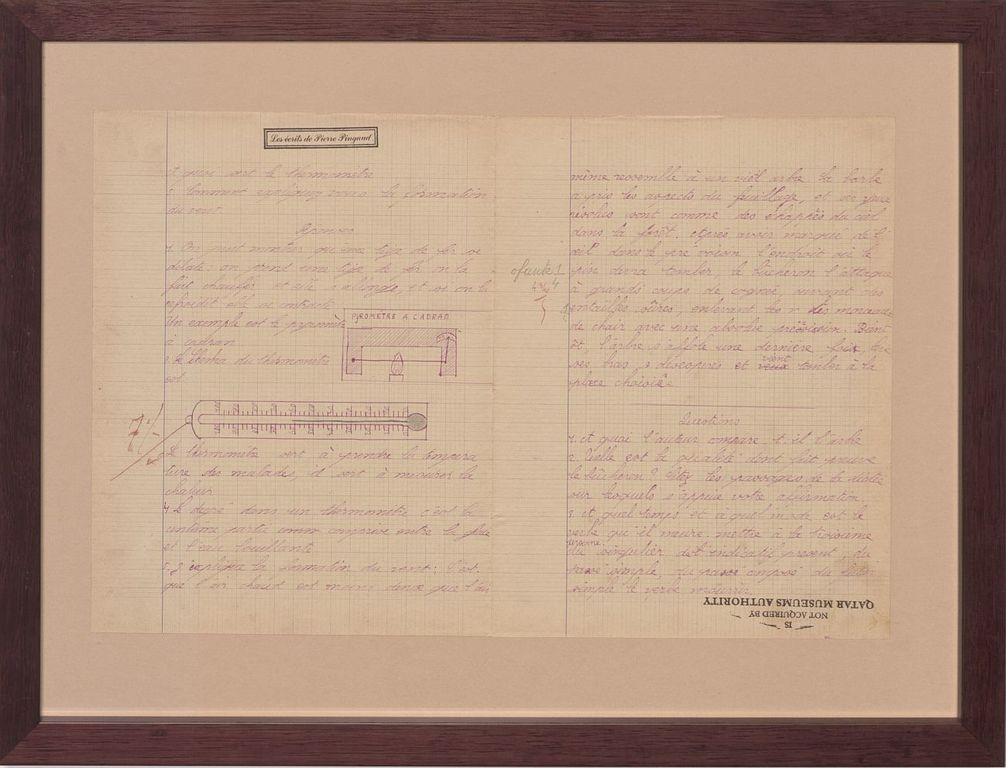 Les écrits de Pierre Pingaud
sert le thermomètre
Comment expliquez vous la formation
du vent
Réponses
1 On peut montrer qu'une tige de fer se
dilate: on prend une tige de fer on la
fait chauffer et elle s'allonge, et si on la
refroidit elle se contracte
Un exemple est le pyromètre
à cadran
PYROMETRE A CADRAN
du thermomètre
est
Le thermomètre sert à prendre la tempéra
ture des malades, il sert à mesurer la
chaleur
4 Le degré dans un thermomètre c'est la
centième partie comprise entre la glace
et l'eau bouillante
la formation du vent: C'est
que l'air chaud est moins dense que l'air
même ressemble à un vieil arbre la barbe
a pris les aspects du feuillage, et les yeux
sont comme des du ciel
dans la forêt. après avoir marqué de l'
œil dans le pré voisin l'endroit où le
pin devra tomber, le bûcheron l'attaque
à grands coups de cognée, ouvrant des
entailles enlevant les morceaux
de chair avec une absolue précision. Bient
ôt, l'arbre une dernière fois,
ses bras et vient tomber à la
place choisie.
Questions
1. et quoi l'auteur compare t-il l'arbre
2. Quelle est la qualité dont fait preuve
le bûcheron? les passages de la dictée
sur lesquels s'appuie votre affirmation.
3. et quel temps et à quel mode est le
verbe qu'il meure. mettre à la troisième
personne
du singulier de l'indicatif présent, du
passé simple, du passé composé du futur
simple le verbe mourrir
IS
NOT ACQUIRED BY
QATAR MUSEUMS AUTHORITY